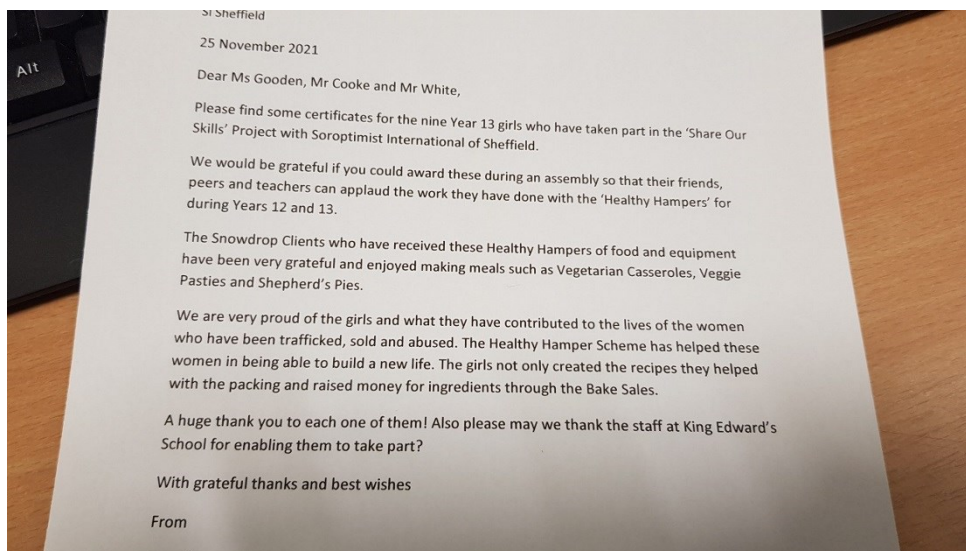 SI Sheffield
25 November 2021
Dear Ms Gooden, Mr Cooke and Mr White,
Please find some certificates for the nine Year 13 girls who have taken part in the ‘Share Our
Skills’ Project with Soroptimist International of Sheffield.
We would be grateful if you could award these during an assembly so that their friends,
peers and teachers can applaud the work they have done with the ‘Healthy Hampers’ for
during Years 12 and 13.
The Snowdrop Clients who have received these Healthy Hampers of food and equipment
have been very grateful and enjoyed making meals such as Vegetarian Casseroles, Veggie
Pasties and Shepherd’s Pies.
We are very proud of the girls and what they have contributed to the lives of the women
who have been trafficked, sold and abused. The Healthy Hamper Scheme has helped these
women in being able to build a new life. The girls not only created the recipes they helped
with the packing and raised money for ingredients through the Bake Sales.
A huge thank you to each one of them! Also please may we thank the staff at King Edward’s
School for enabling them to take part?
With grateful thanks and best wishes
From
Alt